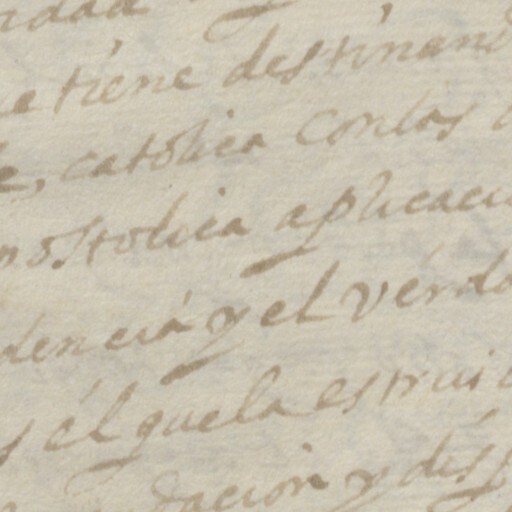 idad
e tiene destinand
e, catolica con las
postolica aplicaci
dencia y el verda
s el que la estrui
dacion y des